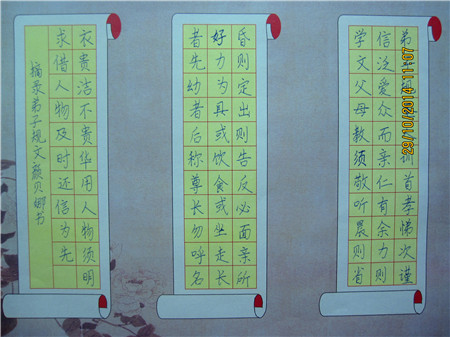 弟子规圣人训首孝悌次谨
信泛爱众而亲仁有余力则
学文父母教须敬听晨则省
昏则定出则告反必面亲所
好力为具或饮食或坐走长
者先幼者后称尊长勿呼名
衣贵洁不贵华用人物须明
求借人物及时还信为先
摘录弟子规文 贝娜书
29/10/2014 11:07